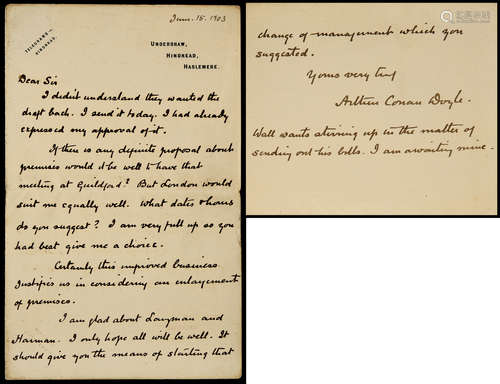 June 15. 1903
TELEGRAMS—
HINDHEAD.
UNDERSHAW,
HINDHEAD,
HASLEMERE.
Dear Sir
I didn't understand they wanted the
draft back. I send it today. I had already
expressed my approval of it.
If there is any definite proposal about
premises would it be well to have that
meeting at Guildford? But London would
suit me equally well. What dates & hours
do you suggest? I am very full up so you
had best give me a choice.
Certainly this improved business
justifies us in considering an enlargement
of premises.
I am glad about Langman and
Harman. I only hope all will be well. It
should give you the means of starting that
change of management which you
suggested.
Yours very truly
Arthur Conan Doyle.
Wall wants stirring up in the matter of
sending out his bills. I am awaiting mine.